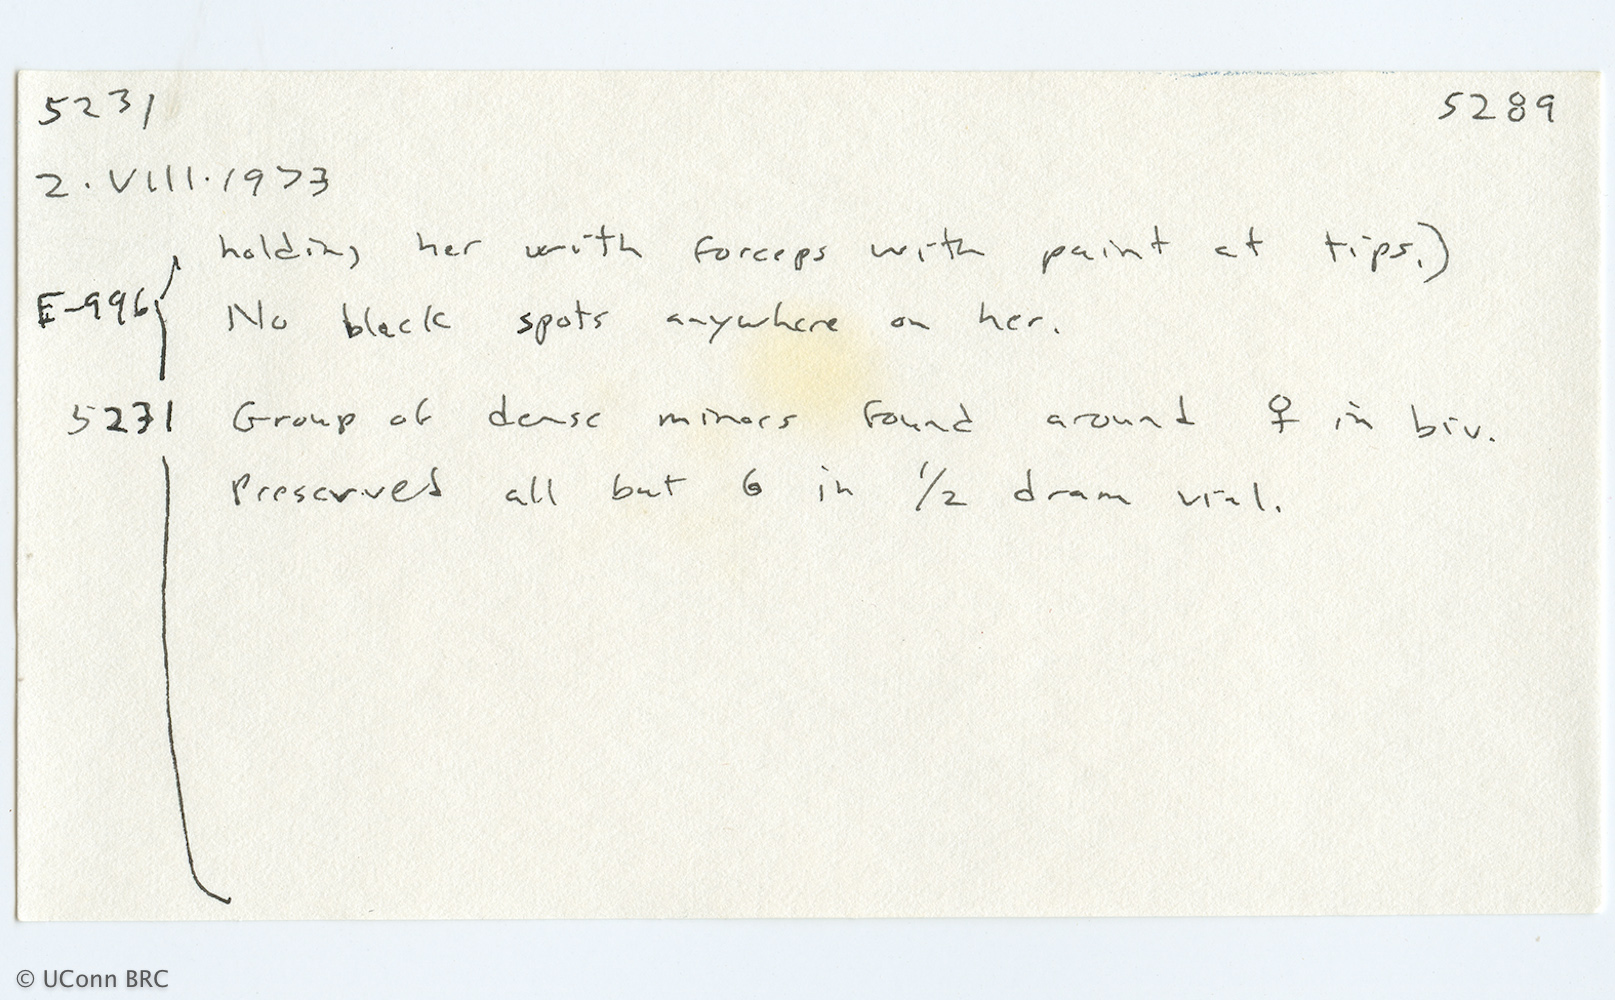 5231 5289
2.VIII.1973
holding her with forceps with paint at tips.)
E-996 No black spots anywhere on her.
5231 Group of dense minors found around ♀ in biv.
Preserved all but 6 in 1/2 dram vial.
© UConn BRC